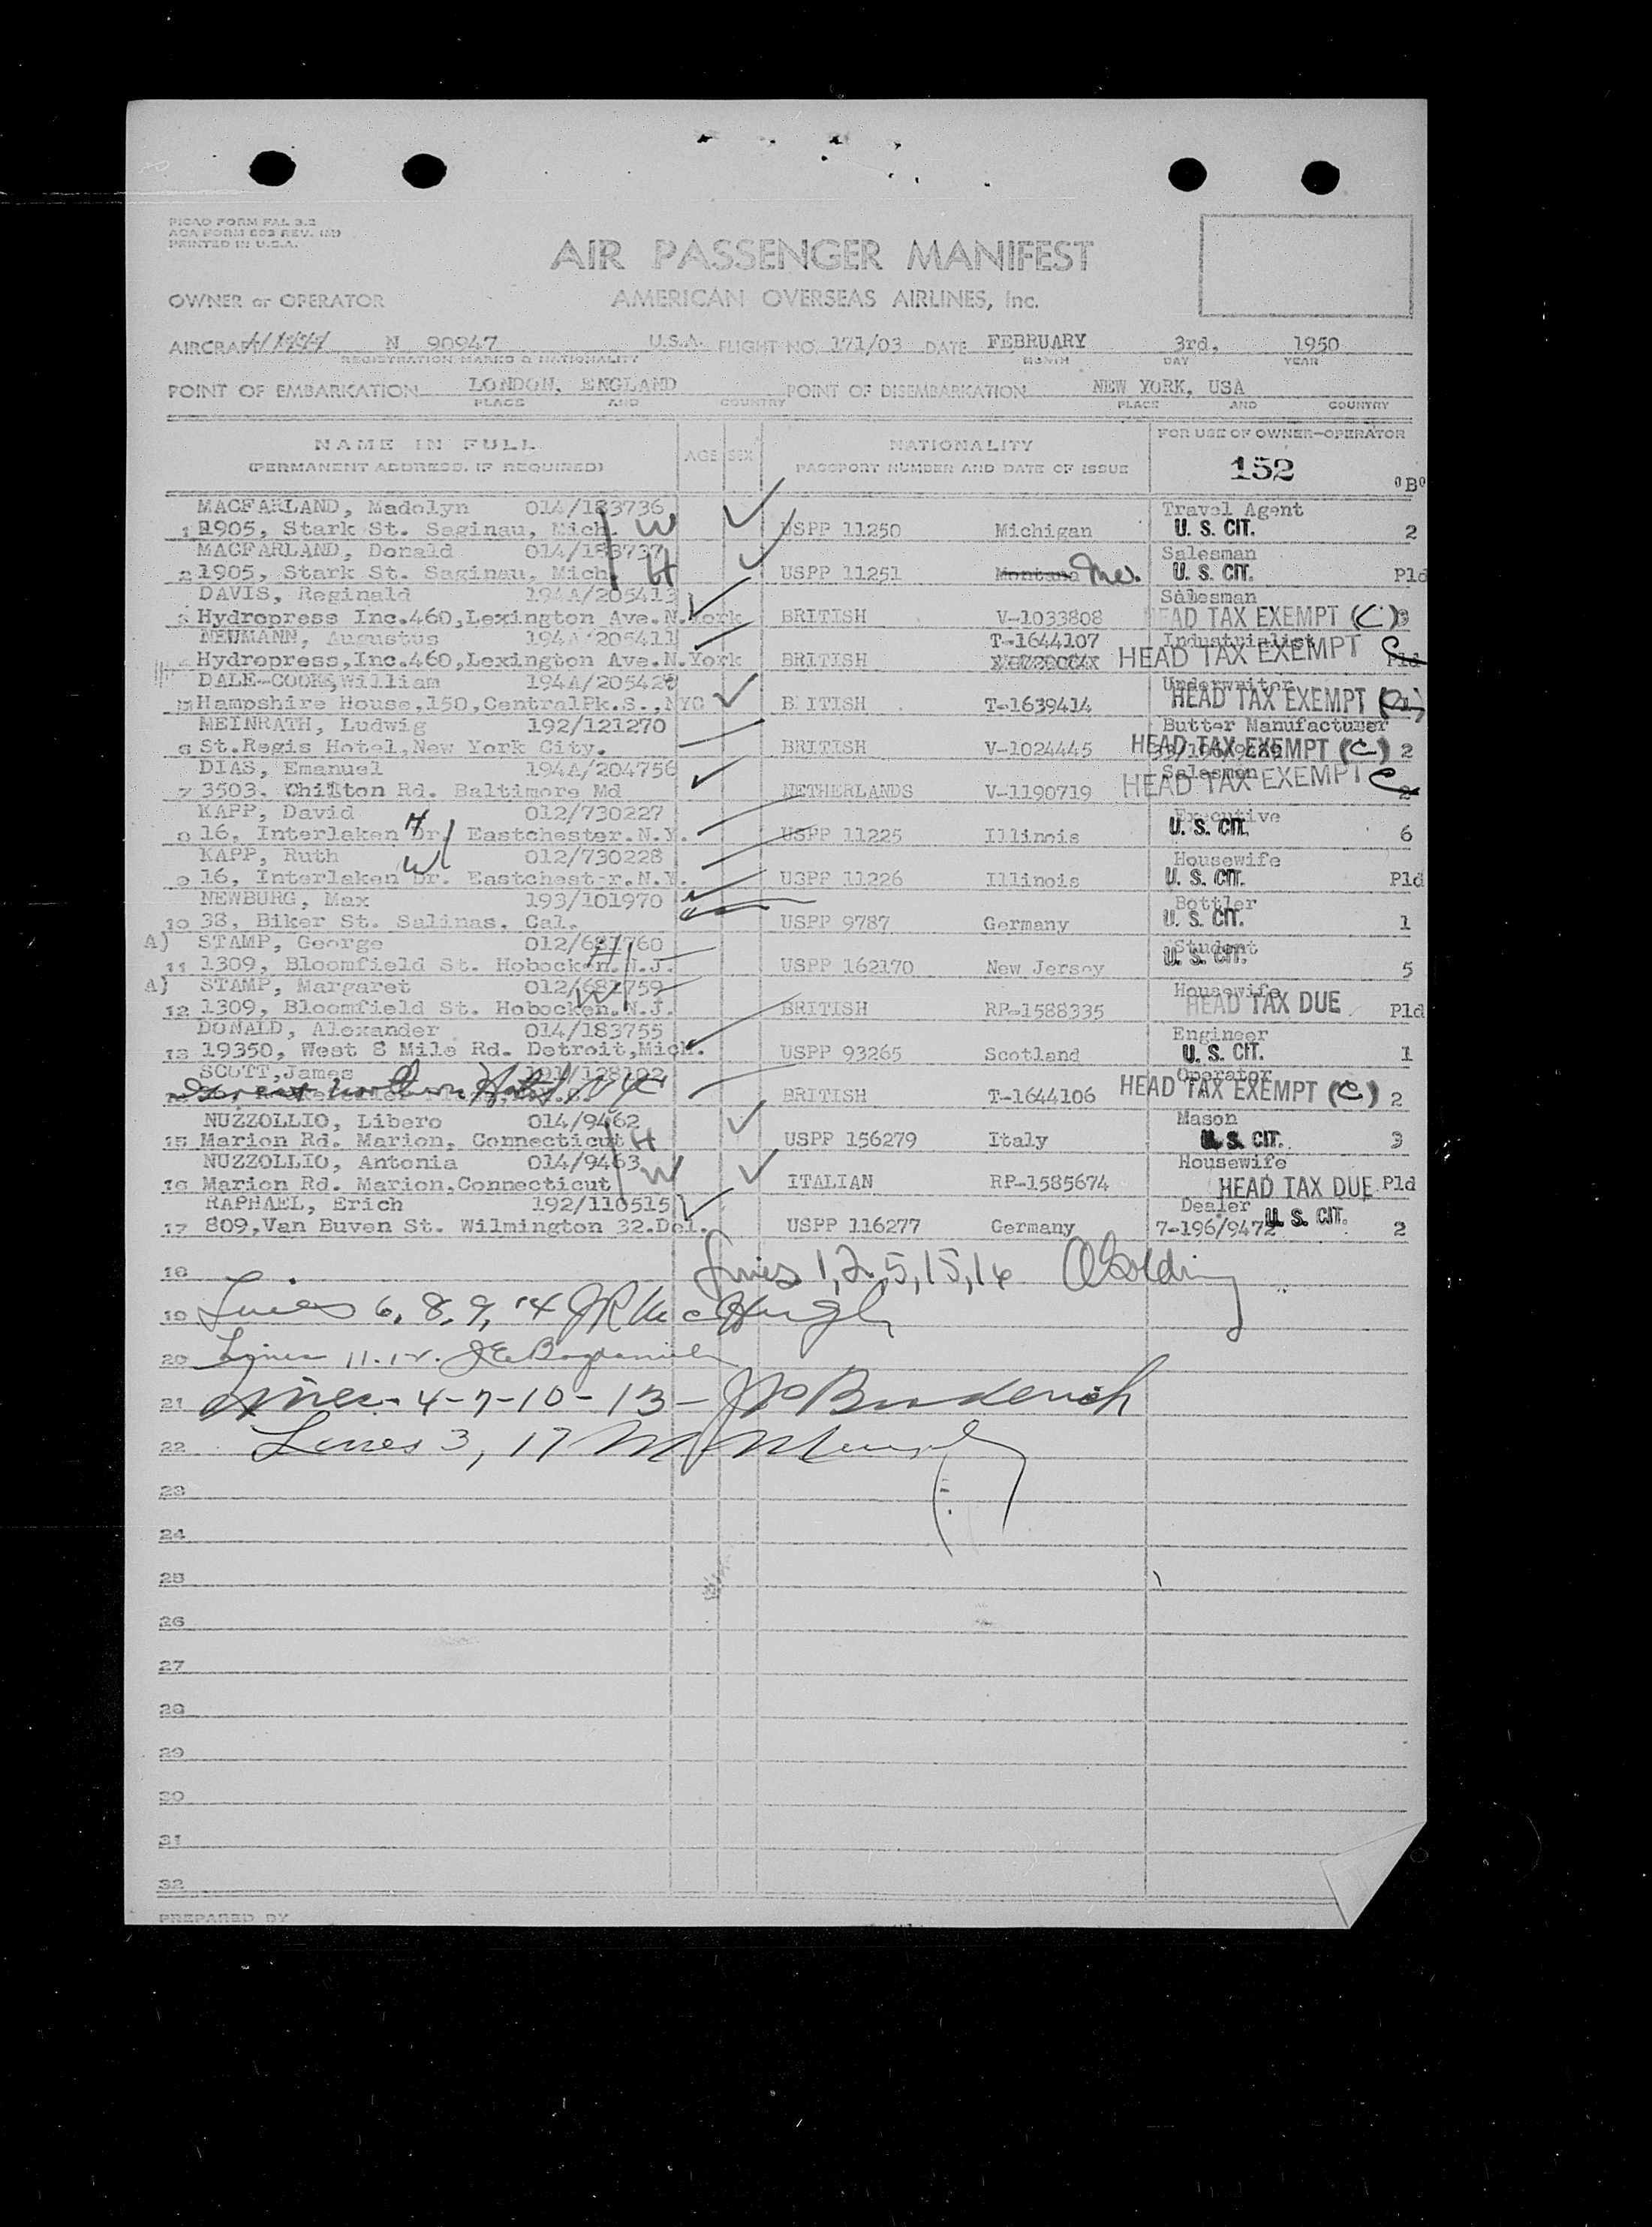 PICAO FORM FAL 3.2
AOA FORM 603 REV.
PRINTED IN U.S.A.
AIR PASSENGER MANIFEST
OWNER or OPERATOR AMERICAN OVERSEAS AIRLINES, Inc.
AIRCRAFT N 90947 U.S.A. FLIGHT NO. 171/03 DATE FEBRUARY 3rd, 1950
REGISTRATION MARKS & NATIONALITY MONTH DAY YEAR
POINT OF EMBARKATION LONDON, ENGLAND POINT OF DISEMBARKATION NEW YORK, USA
PLACE AND COUNTRY PLACE AND COUNTRY
NAME IN FULL AGE SEX NATIONALITY FOR USE OF OWNER-OPERATOR
(PERMANENT ADDRESS, IF REQUIRED) PASSPORT NUMBER AND DATE OF ISSUE 152 "B"
MACFARLAND, Madolyn 014/183736 Travel Agent
1 1905, Stark St. Saginau, Mich. W USPP 11250 Michigan U. S. CIT. 2
MACFARLAND, Donald 014/183737 Salesman
2 1905, Stark St. Saginau, Mich. H USPP 11251 Montana Me. U. S. CIT. Pld
DAVIS, Reginald 194A/205413 Salesman
3 Hydropress Inc.460,Lexington Ave.N.York BRITISH V-1033808 HEAD TAX EXEMPT (C)
NEUMANN, Augustus 194A/205411 T-1644107 Industrialist
4 Hydropress,Inc.460,Lexington Ave.N.York BRITISH HEAD TAX EXEMPT C Pld
DALE-COOKE,William 194A/205428 Underwriter
Hampshire House,150,CentralPk.S.,NYC BRITISH T-1639414 HEAD TAX EXEMPT
MEINRATH, Ludwig 192/121270 Butter Manufacturer
6 St.Regis Hotel,New York City. BRITISH V-1024445 HEAD TAX EXEMPT (C) 2
DIAS, Emanuel 194A/204756 Salesman
7 3503. Chilton Rd. Baltimore Md NETHERLANDS V-1190719 HEAD TAX EXEMPT C 2
KAPP, David 012/730227 Executive
8 16, Interlaken Dr. Eastchester.N.Y. H USPP 11225 Illinois U. S. CIT. 6
KAPP, Ruth 012/730228 Housewife
9 16, Interlaken Dr. Eastchester.N.Y. W USPP 11226 Illinois U. S. CIT. Pld
NEWBURG, Max 193/101970 Bottler
10 38, Biker St. Salinas. Cal. USPP 9787 Germany U. S. CIT. 1
A) STAMP, George 012/681760 Student
11 1309, Bloomfield St. Hobocken.N.J. H USPP 162170 New Jersey U. S. CIT. 5
A) STAMP, Margaret 012/681759 Housewife
12 1309, Bloomfield St. Hobocken.N.J. W BRITISH RP-1588335 HEAD TAX DUE Pld
DONALD, Alexander 014/183755 Engineer
13 19350, West 8 Mile Rd. Detroit,Mich. USPP 93265 Scotland U. S. CIT. 1
SCOTT,James 191/128192 Operator
Great Northern Hotel NYC BRITISH T-1644106 HEAD TAX EXEMPT (C) 2
NUZZOLLIO, Libero 014/9462 Mason
15 Marion Rd. Marion, Connecticut H USPP 156279 Italy U. S. CIT. 3
NUZZOLLIO, Antonia 014/9463 Housewife
16 Marion Rd. Marion,Connecticut W ITALIAN RP-1585674 HEAD TAX DUE Pld
RAPHAEL, Erich 192/110515 Dealer
17 809,Van Buven St. Wilmington 32.Del. USPP 116277 Germany 7-196/9472 U. S. CIT. 2
18 Lines 1,2,5,15,16 Golding
19 Lines 6, 8, 9, 14
20 Lines 11.12.
21 Lines - 4-7-10-13- Broderick
22 Lines 3, 17 Murphy
23
24
25
26
27
28
29
30
31
32
PREPARED BY